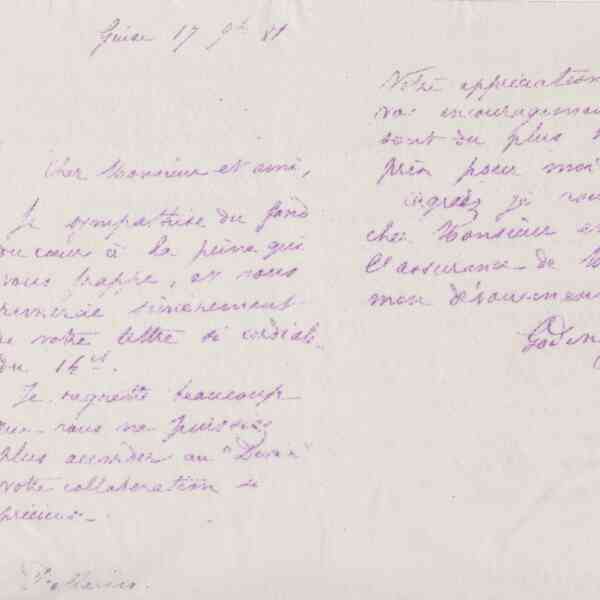 Guise 17 9bre 81
Cher Monsieur et ami,
Je sympathise du fond
du cœur à la peine qui
vous frappe, et vous
remercie sincèrement
de votre lettre si cordiale
du 14 ct.
Je regrette beaucoup
que vous ne puissiez
plus accorder au "Devoir"
votre collaboration si
précieuse.
Votre appréciation
vos encouragements
sont du plus
prix pour moi
Agréez je vous
cher Monsieur et
l'assurance de
mon dévouement
Godin